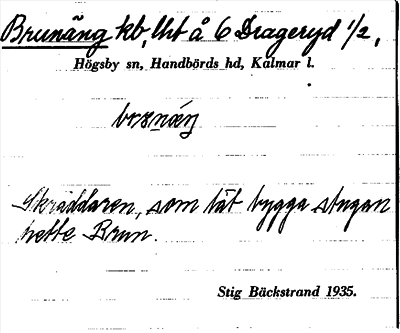 Brunäng kb, lht å 6 Drageryd 1/2,
Högsby sn, Handbörds hd, Kalmar l.
Skräddaren, som lät bygga stugan
hette Brun.
Stig Bäckstrand 1935.